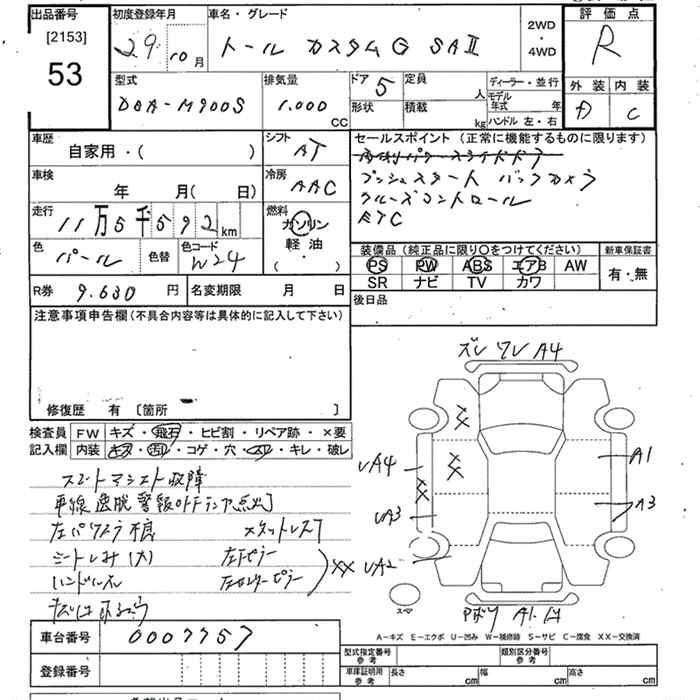 出品番号 初度登録年月 車名・グレード 2WD・4WD 評価点
[2153]
53
29年10月 トール カスタムG SAII R
型式 排気量 ドア 5 定員 人 ディーラー・並行 外装 内装
DBA-M900S 1.000 CC 形状 積載 kg モデル年式 年 ハンドル 左・右 D C
車歴 シフト セールスポイント (正常に機能するものに限ります)
自家用・( ) AT
車検 冷房 プッシュスタート バックカメラ
年 月( 日) AAC クルーズコントロール
走行 燃料 ETC
11万5千592km ガソリン
軽油
( )
色 色替 色コード 装備品 (純正品に限り○をつけてください) 新車保証書
パール W24 PS PW ABS エアB AW 有・無
SR ナビ TV カワ
R券 9.630円 名変期限 月 日 後日品
注意事項申告欄 (不具合内容等は具体的に記入して下さい)
修復歴 有 〔箇所 〕
検査員 FW キズ・飛石・ヒビ割・リペア跡・×要
記入欄 内装 キズ・汚レ・コゲ・穴・スレ・キレ・破レ
ズレ ワレ A4
XX
XX
XX
UA4 A1
UA3 A3
XX UA2
スマートアシスト故障
車線逸脱警報
シートしみ(大) 左Fピラー
ハンドルスレ 左センターピラー
A1
A-キズ E-エクボ U-凹み W-補修跡 S-サビ C-腐食 XX-交換済
車台番号 0007757
登録番号
型式指定番号 参考 類別区分番号 参考
車庫証明用 参考 長さ cm 幅 cm 高さ cm